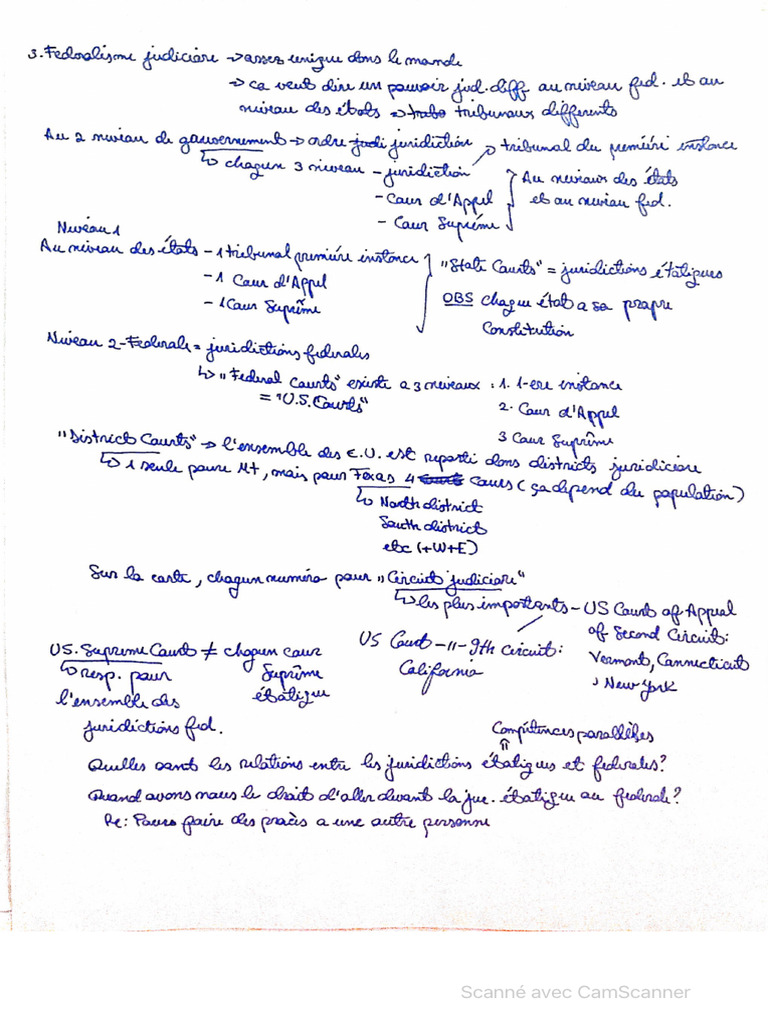 3. Federalisme judiciare → assez unique dans le monde
→ ca veut dire un pouvoir jud. diff au niveau fed. et au
niveau des états → tribunaux differents
Au 2 niveau de gouvernement → ordre juridiction → tribunal du premiére instance
↳ chaqun 3 niveau - juridiction
- Cour d'Appel
- Cour Suprême
Au niveaux des états
et au niveau fed.
Niveau 1
Au niveau des états - 1 tribunal premiére instance
- 1 Cour d'Appel
- 1 Cour Suprême
"State Courts" = juridictions étatiques
OBS chaque état a sa propre
Constitution
Niveau 2 - Federale = juridictions federales
↳ "Federal Courts" existe a 3 niveaux : 1. 1-ere instance
= "U.S. Courts"
2. Cour d'Appel
3 Cour Suprême
"District Courts" → l'ensemble des E.U. est reparti dans districts juridiciare
↳ 1 seule poure MT, mais pour Texas 4 cours (ça depend du population)
↳ North district
South district
etc (+W+E)
Sur la carte, chaqun numéro pour "Circuit judiciare"
↳ les plus importants - US Court of Appeal
of Second Circuit:
Vermont, Connecticut
, New York
US Court -11- 9th circuit:
California
US. Supreme Court ≠ chaqun cour
Suprême
étatique
↳ resp. pour
l'ensemble des
juridictions fed.
Compétences parallèles
⇑
Quelles sont les relations entre les juridictions étatiques et federales?
Quand avons nous le droit d'aller devant la jur. étatique au federale?
Re: Poure faire des procès a une autre personne
Scanné avec CamScanner